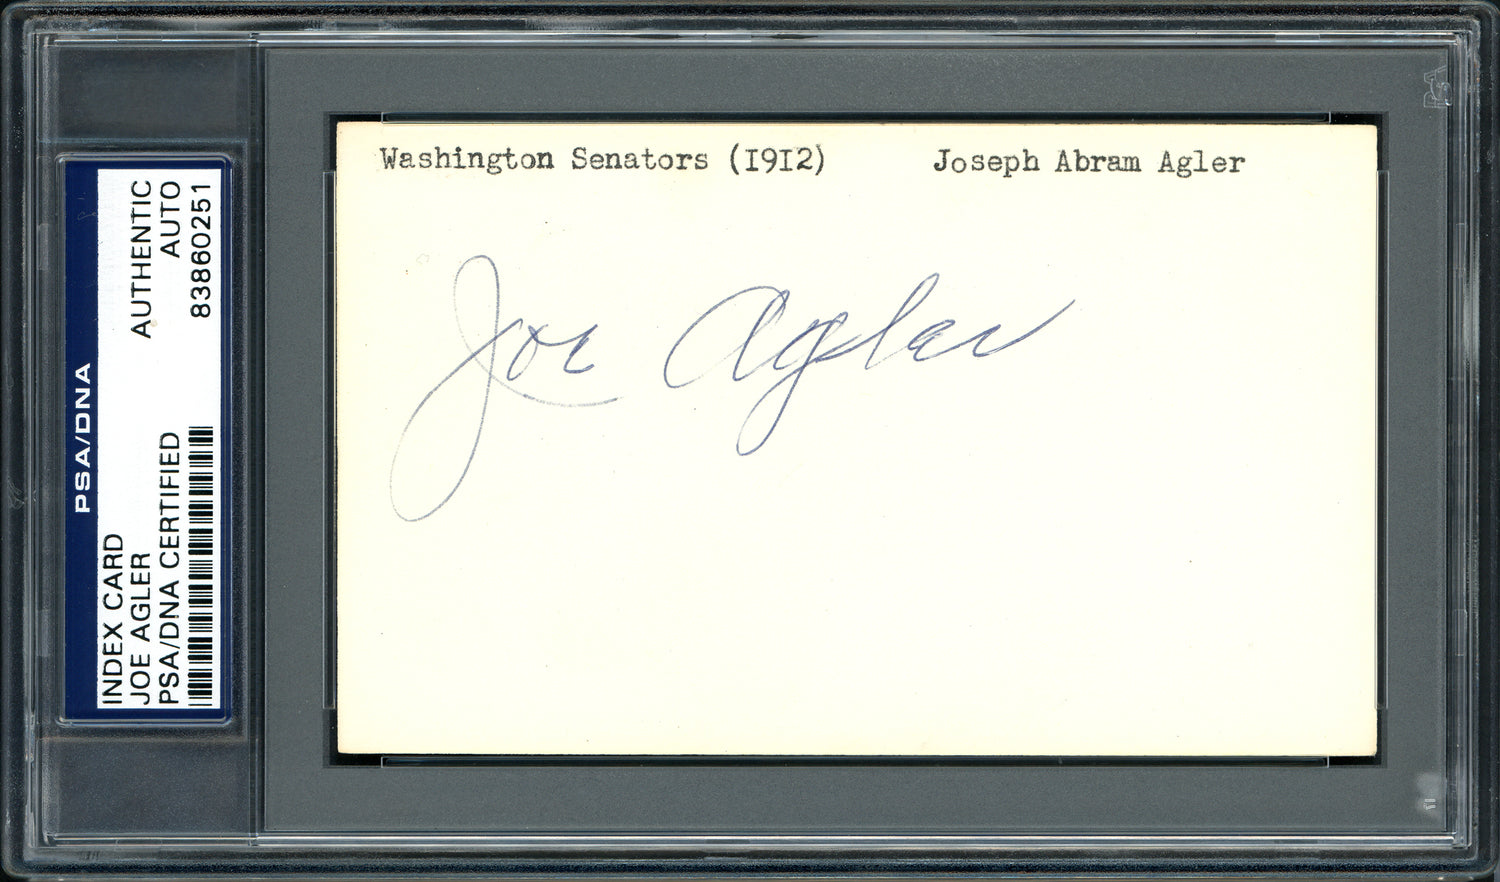 PSA/DNA
INDEX CARD AUTHENTIC
JOE AGLER AUTO
PSA/DNA CERTIFIED 83860251
Washington Senators (1912) Joseph Abram Agler
Joe Agler